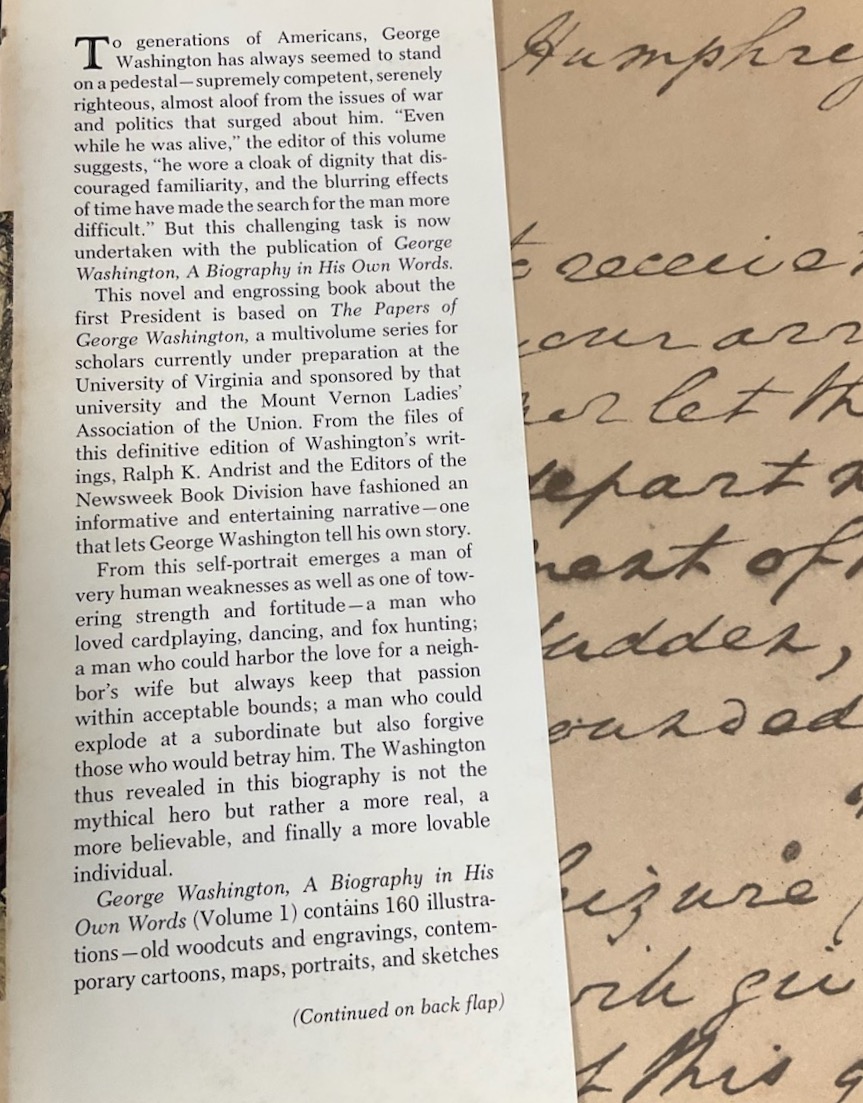 To generations of Americans, George
Washington has always seemed to stand
on a pedestal—supremely competent, serenely
righteous, almost aloof from the issues of war
and politics that surged about him. “Even
while he was alive,” the editor of this volume
suggests, “he wore a cloak of dignity that dis-
couraged familiarity, and the blurring effects
of time have made the search for the man more
difficult.” But this challenging task is now
undertaken with the publication of George
Washington, A Biography in His Own Words.
This novel and engrossing book about the
first President is based on The Papers of
George Washington, a multivolume series for
scholars currently under preparation at the
University of Virginia and sponsored by that
university and the Mount Vernon Ladies’
Association of the Union. From the files of
this definitive edition of Washington’s writ-
ings, Ralph K. Andrist and the Editors of the
Newsweek Book Division have fashioned an
informative and entertaining narrative—one
that lets George Washington tell his own story.
From this self-portrait emerges a man of
very human weaknesses as well as one of tow-
ering strength and fortitude—a man who
loved cardplaying, dancing, and fox hunting;
a man who could harbor the love for a neigh-
bor’s wife but always keep that passion
within acceptable bounds; a man who could
explode at a subordinate but also forgive
those who would betray him. The Washington
thus revealed in this biography is not the
mythical hero but rather a more real, a
more believable, and finally a more lovable
individual.
George Washington, A Biography in His
Own Words (Volume 1) contains 160 illustra-
tions—old woodcuts and engravings, contem-
porary cartoons, maps, portraits, and sketches
(Continued on back flap)
Humphrey
let
depart
of